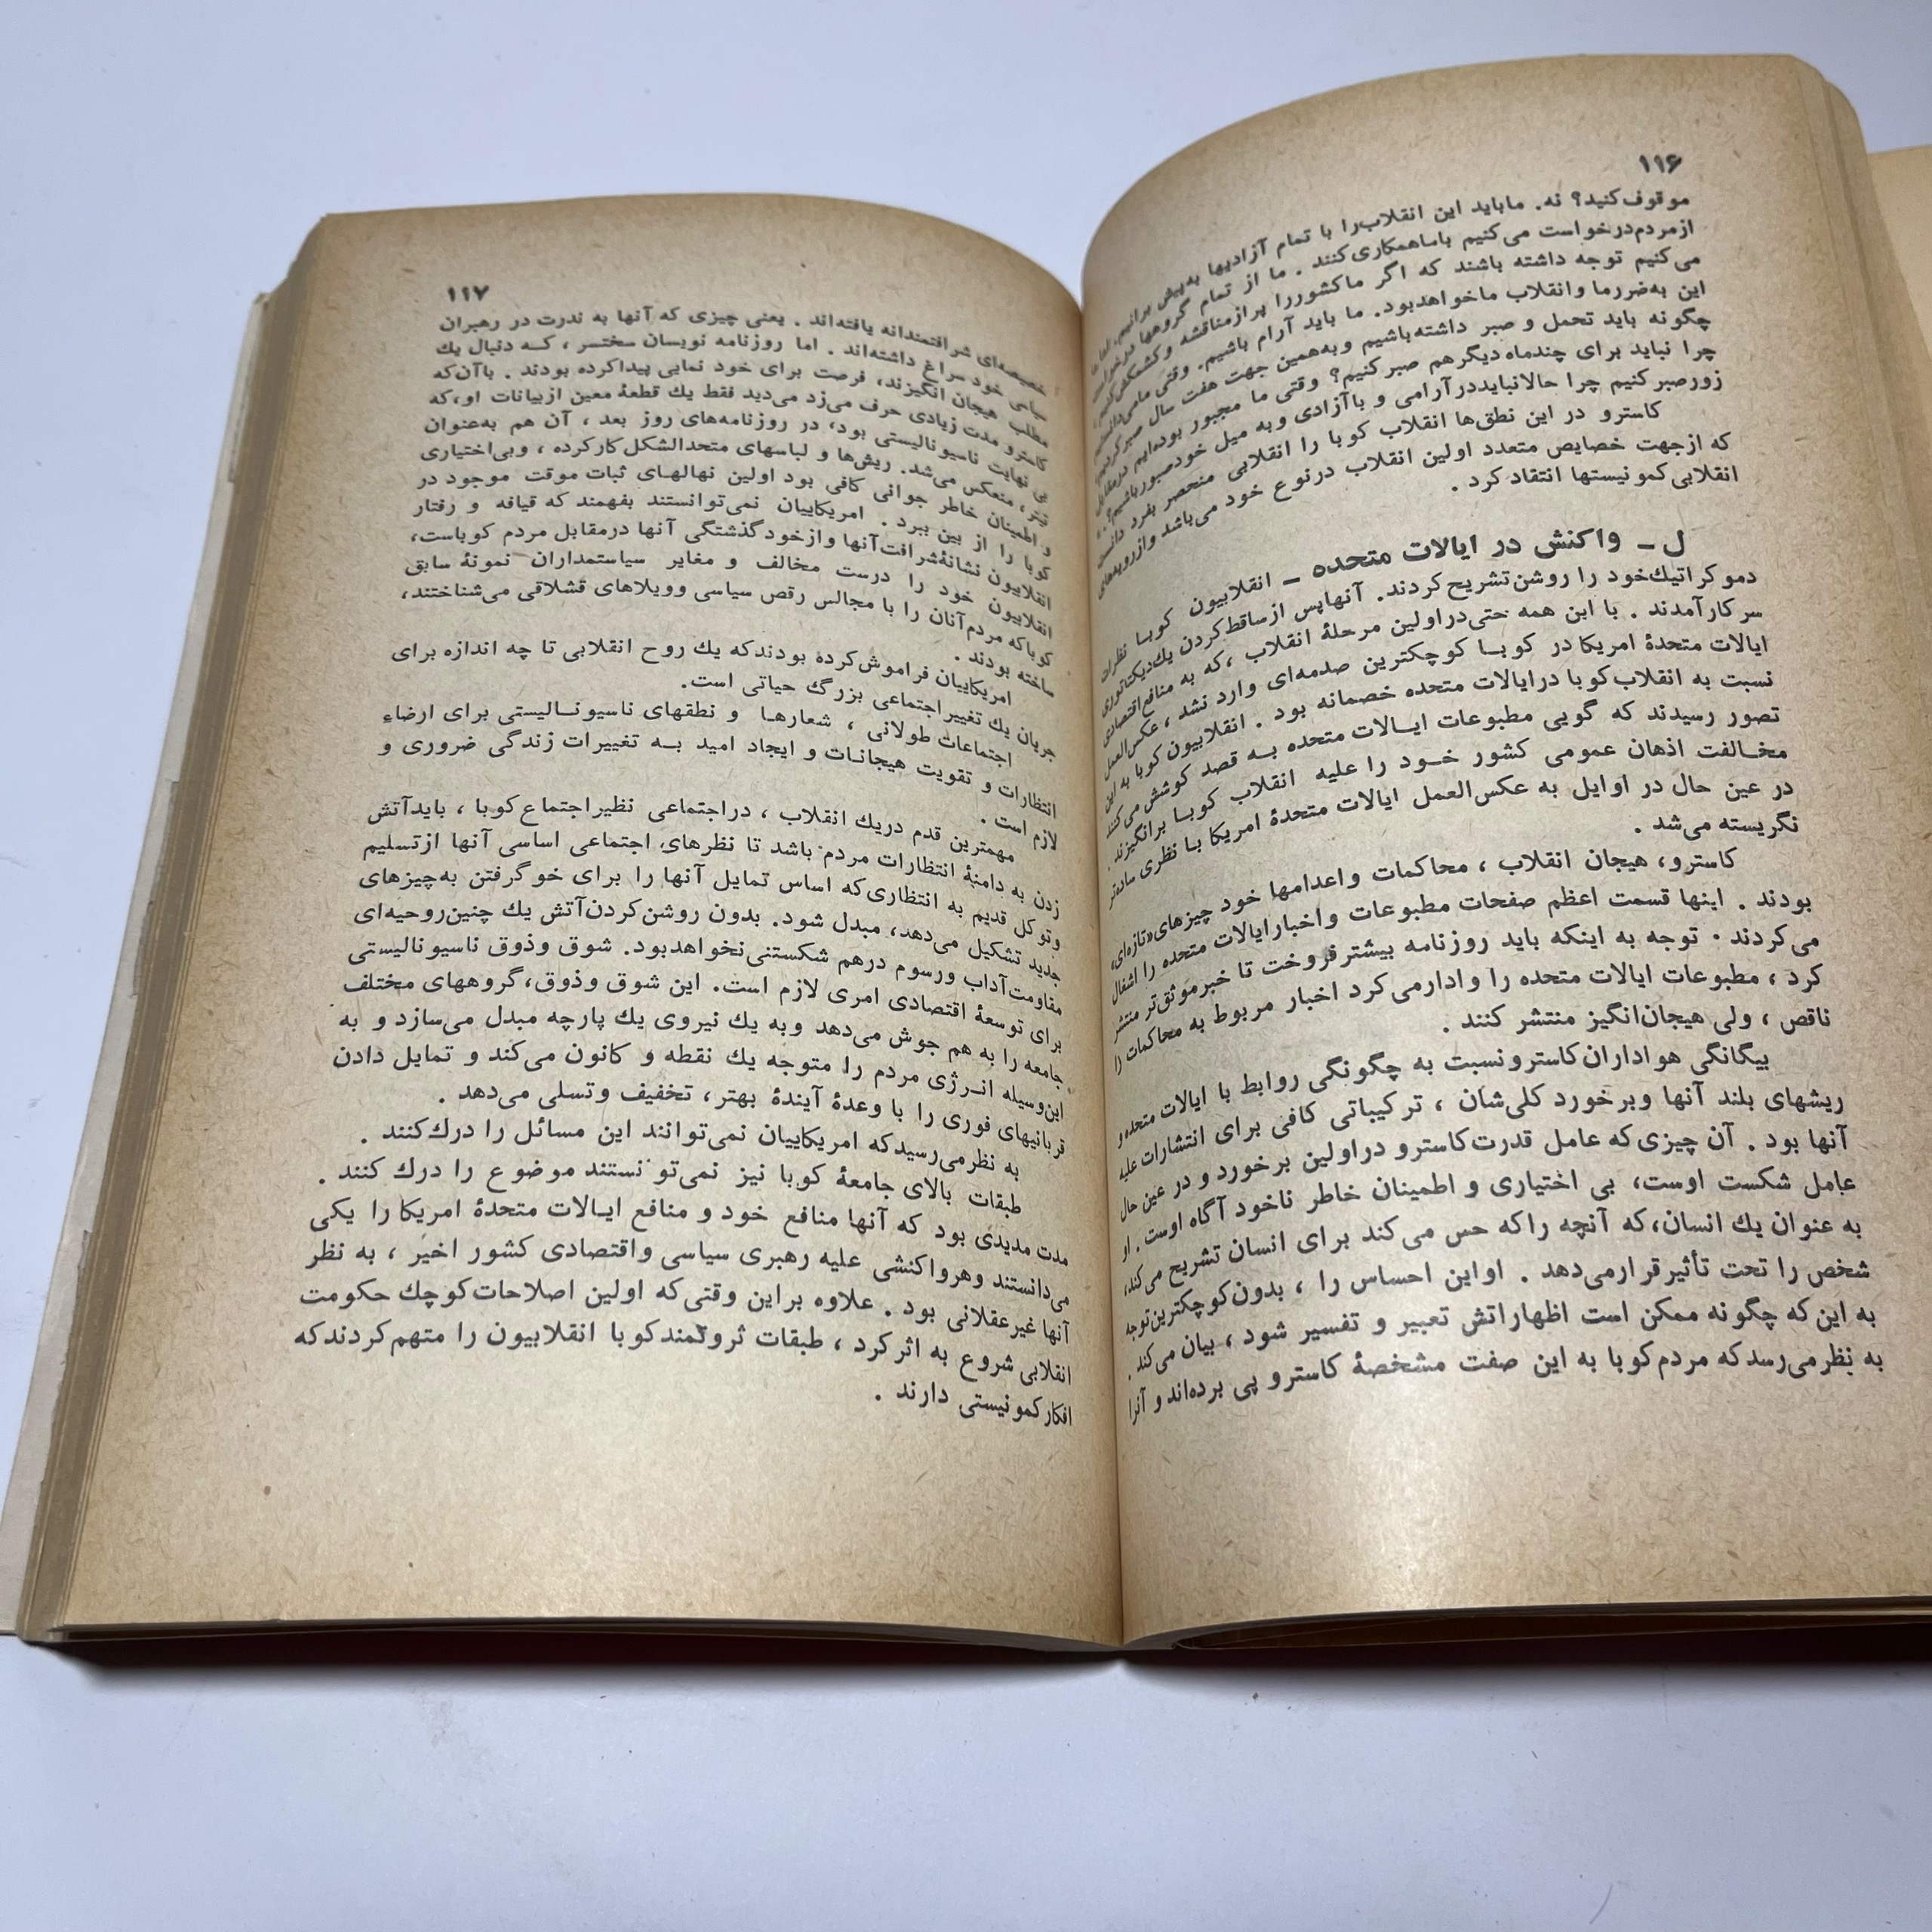 ۱۱۶
موقوف‌کنید؟ نه. ماباید این انقلاب‌را با تمام آزادیها به‌پیش برانیم، اما ما
ازمردم‌درخواست می‌کنیم باماهمکاری‌کنند . ما از تمام گروهها درخواست
می‌کنیم توجه داشته باشند که اگر ماکشوررا پرازمناقشه وکشمکش‌کنیم،
این به‌ضررما وانقلاب ماخواهدبود. ما باید آرام باشیم. وقتی مامی‌دانستیم
چگونه باید تحمل و صبر داشته‌باشیم وبه‌همین جهت هفت سال صبرکردیم،
چرا نباید برای چندماه دیگرهم صبرکنیم؟ وقتی ما مجبور بوده‌ایم درمقابل
زورصبرکنیم چرا حالانبایددرآرامی و باآزادی وبه میل خودصبورباشیم؟.»
کاسترو در این نطق‌ها انقلاب کوبا را انقلابی منحصر بفرد دانست
که ازجهت خصایص متعدد اولین انقلاب درنوع خود می‌باشد وازرویه‌های
انقلابی‌کمونیستها انتقاد کرد .
ل ـ واکنش در ایالات متحده ـ انقلابیون کوبا نظرات
دموکراتیك‌خود را روشن‌تشریح‌کردند. آنهاپس ازساقط‌کردن یك‌دیکتاتوری
سرکارآمدند . با این همه حتی‌دراولین مرحلهٔ انقلاب ،که به منافع‌اقتصادی
ایالات متحدهٔ امریکا در کوبا کوچکترین صدمه‌ای وارد نشد ، عکس‌العمل
نسبت به انقلاب‌کوبا درایالات متحده خصمانه بود . انقلابیون کوبا به این
تصور رسیدند که گویی مطبوعات ایالات متحده به قصد کوشش می‌کنند
مخالفت اذهان عمومی کشور خود را علیه انقلاب کوبا برانگیزند.
در عین حال در اوایل به عکس‌العمل ایالات متحدهٔ امریکا با نظری ساده‌تر
نگریسته می‌شد .
کاسترو، هیجان انقلاب ، محاکمات واعدامها خود چیزهای«تازه‌ای»
بودند . اینها قسمت اعظم صفحات مطبوعات واخبارایالات متحده را اشغال
می‌کردند . توجه به اینکه باید روزنامه بیشترفروخت تا خبرموثق‌تر منتشر
کرد ، مطبوعات ایالات متحده را وادارمی‌کرد اخبار مربوط به محاکمات را
ناقص ، ولی هیجان‌انگیز منتشر کنند .
بیگانگی هواداران‌کاسترونسبت به چگونگی روابط با ایالات متحده و
ریشهای بلند آنها وبرخورد کلی‌شان ، ترکیباتی کافی برای انتشارات علیه
آنها بود . آن چیزی‌که عامل قدرت‌کاسترو دراولین برخورد و در عین حال
عامل شکست اوست، بی اختیاری و اطمینان خاطر ناخود آگاه اوست . او
به عنوان یك انسان،که آنچه راکه حس می‌کند برای انسان تشریح می‌کند،
شخص را تحت تأثیرقرارمی‌دهد . اواین احساس را ، بدون‌کوچکترین‌توجه
به این‌که چگونه ممکن است اظهاراتش تعبیر و تفسیر شود ، بیان می‌کند .
به نظرمی‌رسدکه مردم‌کوبا به این صفت مشخصهٔ کاسترو پی برده‌اند و آنرا
۱۱۷
خصیصه‌ای شرافتمندانه یافته‌اند . یعنی چیزی که آنها به ندرت در رهبران
سیاسی خود سراغ داشته‌اند . اما روزنامه نویسان سختسر ، که دنبال یك
مطلب هیجان انگیزند، فرصت برای خود نمایی پیداکرده بودند . باآن‌که
کاسترو مدت زیادی حرف می‌زد می‌دید فقط یك قطعهٔ معین ازبیانات او،که
بی نهایت ناسیونالیستی بود، در روزنامه‌های روز بعد ، آن هم به‌عنوان
تیتر، منعکس می‌شد. ریش‌ها و لباسهای متحدالشکل کارکرده ، وبی‌اختیاری
و اطمینان خاطر جوانی کافی بود اولین نهالهای ثبات موقت موجود در
کوبا را از بین ببرد . امریکاییان نمی‌توانستند بفهمند که قیافه و رفتار
انقلابیون نشانهٔ‌شرافت‌آنها وازخودگذشتگی آنها درمقابل مردم کوباست،
انقلابیون خود را درست مخالف و مغایر سیاستمداران نمونهٔ سابق
کوباکه مردم‌آنان را با مجالس رقص سیاسی وویلاهای قشلاقی می‌شناختند،
ساخته بودند .
امریکاییان فراموش‌کرده بودندکه یك روح انقلابی تا چه اندازه برای
جریان یك تغییراجتماعی بزرگ حیاتی است.
اجتماعات طولانی ، شعارها و نطقهای ناسیونالیستی برای ارضاء
انتظارات و تقویت هیجانات و ایجاد امید به تغییرات زندگی ضروری و
لازم است .
مهمترین قدم دریك انقلاب ، دراجتماعی نظیراجتماع‌کوبا ، بایدآتش
زدن به دامنهٔ انتظارات مردم باشد تا نظرهای اجتماعی اساسی آنها ازتسلیم
وتوکل قدیم به انتظاری‌که اساس تمایل آنها را برای خوگرفتن به‌چیزهای
جدید تشکیل می‌دهد، مبدل شود. بدون روشن‌کردن‌آتش یك چنین‌روحیه‌ای
مقاومت‌آداب ورسوم درهم شکستنی‌نخواهدبود. شوق وذوق ناسیونالیستی
برای توسعهٔ اقتصادی امری لازم است. این شوق وذوق،گروههای مختلف
جامعه را به هم جوش می‌دهد وبه یك نیروی یك پارچه مبدل می‌سازد و به
این‌وسیله انرژی مردم را متوجه یك نقطه و کانون می‌کند و تمایل دادن
قربانیهای فوری را با وعدهٔ آیندهٔ بهتر، تخفیف وتسلی می‌دهد .
به نظرمی‌رسیدکه امریکاییان نمی‌توانند این مسائل را درك‌کنند .
طبقات بالای جامعهٔ کوبا نیز نمی‌توانستند موضوع را درك کنند .
مدت مدیدی بود که آنها منافع خود و منافع ایالات متحدهٔ امریکا را یکی
می‌دانستند وهرواکنشی علیه رهبری سیاسی واقتصادی کشور اخیر ، به نظر
آنها غیرعقلانی بود . علاوه براین وقتی‌که اولین اصلاحات‌کوچك حکومت
انقلابی شروع به اثرکرد ، طبقات ثروتمندکوبا انقلابیون را متهم‌کردندکه
افکارکمونیستی دارند .